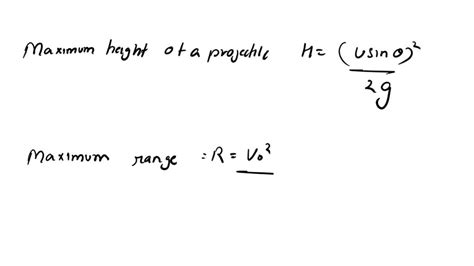 Maximum height of a projectile H = (usinθ)²
2g
Maximum range : R = V₀²